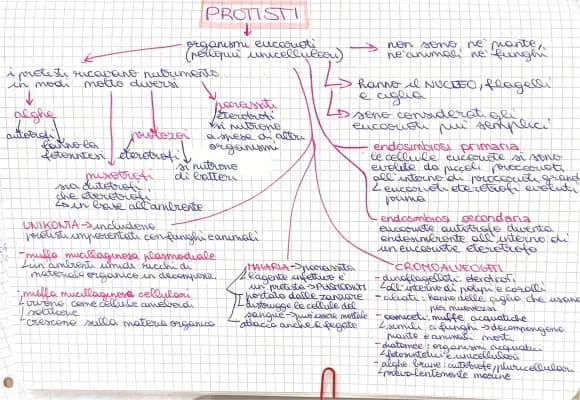 PROTISTI
organismi eucarioti
(perlopiù unicellulari)
non sono nè piante,
nè animali nè funghi
hanno il NUCLEO, flagelli
e ciglia
sono considerati gli
eucarioti più semplici
i protisti ricavano nutrimento
in modi molto diversi
alghe
autotrofi
fanno la
fotosintesi
protozoi
eterotrofi
si nutrono
di batteri
parassiti
eterotrofi
si nutrono
a spese di altri
organismi
mixotrofi
sia autotrofi
che eterotrofi
in base all'ambiente
endosimbiosi primaria
le cellule eucariote si sono
evolute da piccoli procarioti
all'interno di procarioti grandi
eucarioti eterotrofi evoluti
prima
endosimbiosi secondaria
eucariote autotrofo diventa
endosimbionte all'interno di
un eucariote eterotrofo
UNIKONTA → includono
protisti imparentati con funghi e animali
- muffa mucillaginosa plasmodiale
in ambienti umidi ricchi di
materiale organico in decompos.
- muffa mucillaginosa cellulari
vivono come cellule ameboidi
solitarie
crescono sulla materia organica
MALARIA → parassita
l'agente infettivo è
un protista → PLASMODI
portato dalle zanzare
distrugge le cellule del
sangue → può essere mortale
attacca anche il fegato
CROMOALVEOLATI
- dinoflagellati: eterotrofi
all'interno di polipi e coralli
- ciliati: hanno delle ciglia che usano
per muoversi
- oomiceti: muffe acquatiche
simili a funghi → decompongono
piante e animali morti
- diatomee: organismi acquatici
fotosintetici e unicellulari
- alghe brune: autotrofe/pluricellulari
prevalentemente marine